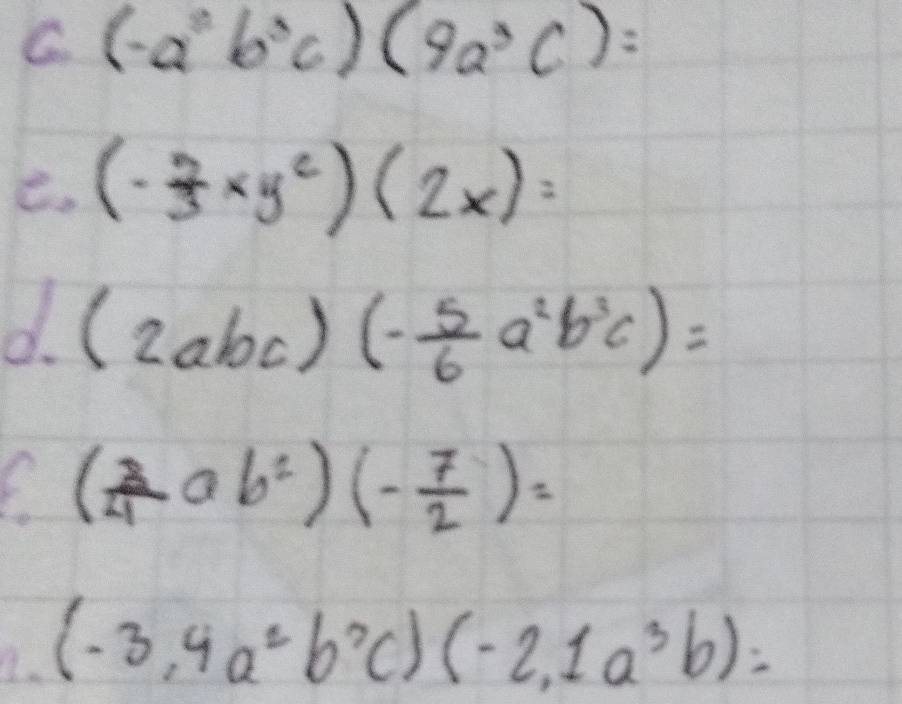 c. (-a²b³c)(9a³c)=
e. (-7/3 xy²)(2x)=
d. (2abc)(-5/6 a²b³c)=
f. (3/4 ab²)(-7/2)=
(-3,4a²b³c)(-2,1a³b)=